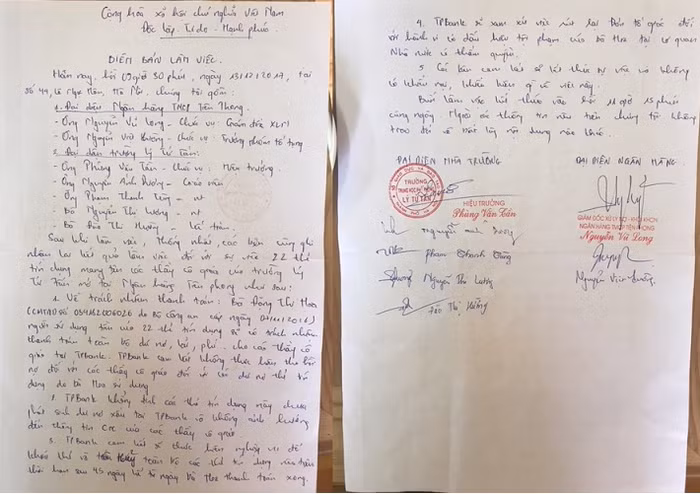 Cộng hòa xã hội chủ nghĩa Việt Nam
Độc lập - Tự do - Hạnh phúc
BIÊN BẢN LÀM VIỆC
Hôm nay, hồi 09 giờ 30 phút, ngày 13/12/2019, tại
số 44, Lê Ngọc Hân, Hà Nội. Chúng tôi gồm:
1. Đại diện Ngân hàng TMCP Tiên Phong
- Ông Nguyễn Vũ Long - Chức vụ: Giám đốc XLN
- Ông Nguyễn Việt Cường - chức vụ: Trưởng phòng tố tụng
2. Đại diện trường Lý Tử Tấn:
- Ông Phùng Văn Tân - Chức vụ: Hiệu trưởng
- Ông Nguyễn Anh Giáo viên
- Ông Phạm Thanh Tùng - nt
- Bà Nguyễn Thị Lương - nt
- Bà Thị Hường Kế toán
Sau khi làm việc, thống nhất, các bên cùng ghi
nhận lại kết quả làm việc đối với sự việc 22 thẻ
tín dụng mang tên các thầy cô giáo của trường Lý
Tử Tấn mở tại Ngân hàng Tiên phong như sau:
1. Về trách nhiệm thanh toán: Bà Đặng Thị Hoa
(CMTND số do Bộ công an cấp ngày
người sử dụng tiền của 22 thẻ tín dụng sẽ có trách nhiệm
thanh toán toàn bộ dư nợ, lãi, phí cho các thầy cô
giáo tại TPBank. TPBank cam kết không thực hiện thu hồi
nợ đối với các thầy cô giáo đối với các dư nợ thẻ tín
dụng do bà Hoa sử dụng
2. TPBank không tính các thẻ tín dụng này
phát sinh dư nợ xấu tại TPBank và không ảnh hưởng
đến thông tin CIC của các thầy cô giáo.
3. TPBank cam kết sẽ thực hiện nghiệp vụ để
khóa thẻ và toàn bộ các thẻ tín dụng nêu trên
thời hạn sau 45 ngày kể từ ngày bà Hoa thanh toán xong.
4. TPBank sẽ xem xét việc rút lại Đơn tố giác đối
với hành vi có dấu hiệu tội phạm của bà Hoa tại cơ quan
Nhà nước có thẩm quyền.
5. Các bên cam kết sẽ kết thúc sự việc và không
có khiếu nại, khiếu kiện gì về việc này.
Buổi làm việc kết thúc vào hồi 11 giờ 15 phút
cùng ngày. Ngoài các thông tin nêu trên chúng tôi không
trao đổi về bất kỳ nội dung nào khác.
ĐẠI DIỆN NHÀ TRƯỜNG
ĐẠI DIỆN NGÂN HÀNG
TRƯỜNG
LÝ TỬ TẤN
HIỆU TRƯỞNG
Phùng Văn Tân
GIÁM ĐỐC XỬ LÝ NỢ - KHỐI KHCN
NGÂN HÀNG TMCP TIÊN PHONG
Nguyễn Vũ Long
Nguyễn Anh
Phạm Thanh Tùng
Nguyễn Thị Lương
Thị Hường
Nguyễn Việt Cường